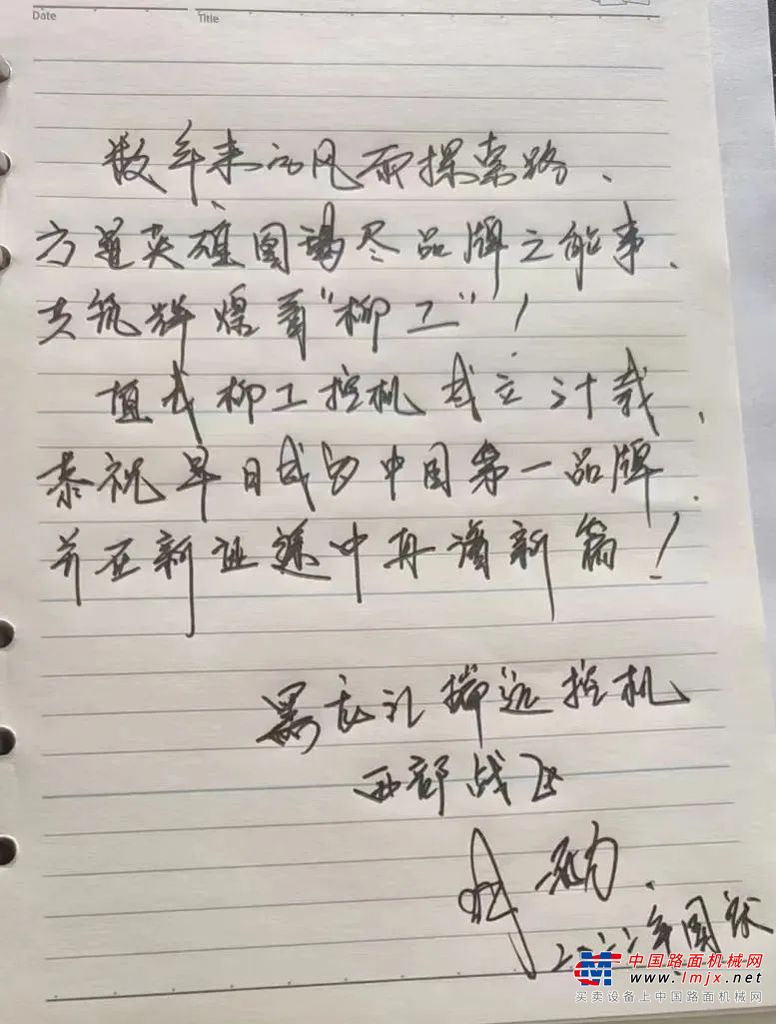 Date Title
数年来的风雨探索路、
方逞英雄图竭尽品牌之能事、
共筑辉煌看"柳工"！
值此柳工挖机成立廿载、
恭祝早日成为中国第一品牌、
并在新征途中再谱新篇！
黑龙江 挖机
西部战区
二〇二二年国庆
中国路面机械网
www.lmjx.net
买卖设备上中国路面机械网